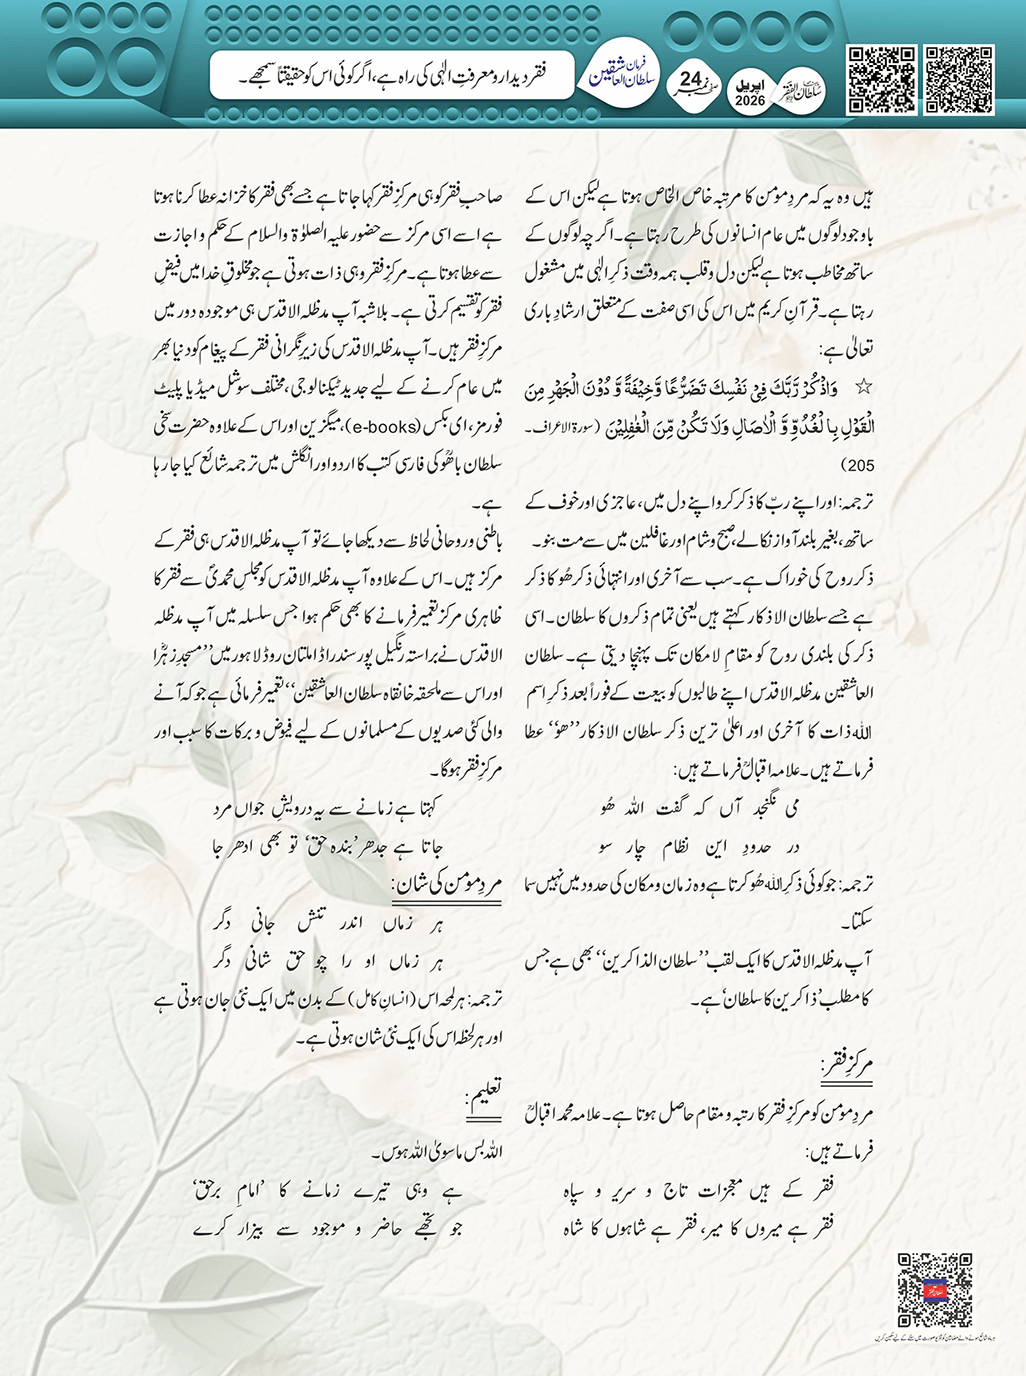 فقر دیدار و معرفتِ الٰہی کی راہ ہے، اگر کوئی اس کو حقیقتاً سمجھے۔
فرمان سلطان العاشقین
صفحہ نمبر 24
اپریل 2026
سلطان الفقر
ہیں وہ یہ کہ مردِ مومن کا مرتبہ خاص الخاص ہوتا ہے لیکن اس کے
باوجود لوگوں میں عام انسانوں کی طرح رہتا ہے۔ اگرچہ لوگوں کے
ساتھ مخاطب ہوتا ہے لیکن دل و قلب ہمہ وقت ذکرِ الٰہی میں مشغول
رہتا ہے۔ قرآنِ کریم میں اس کی اسی صفت کے متعلق ارشادِ باری
تعالیٰ ہے:
☆ وَاذْكُرْ رَّبَّكَ فِیْ نَفْسِكَ تَضَرُّعًا وَّخِیْفَةً وَّ دُوْنَ الْجَهْرِ مِنَ
الْقَوْلِ بِا لْغُدُوِّ وَّ الْاٰصَالِ وَلَا تَكُنْ مِّنَ الْغٰفِلِیْنَ (سورۃ الاعراف۔
205)
ترجمہ: اور اپنے ربّ کا ذکر کرو اپنے دل میں، عاجزی اور خوف کے
ساتھ، بغیر بلند آواز نکالے، صبح و شام اور غافلین میں سے مت بنو۔
ذکر روح کی خوراک ہے۔ سب سے آخری اور انتہائی ذکر ھُو کا ذکر
ہے جسے سلطان الاذکار کہتے ہیں یعنی تمام ذکروں کا سلطان۔ اسی
ذکر کی بلندی روح کو مقامِ لامکان تک پہنچا دیتی ہے۔ سلطان
العاشقین مدظلہ الاقدس اپنے طالبوں کو بیعت کے فوراً بعد ذکرِ اسم
اللہ ذات کا آخری اور اعلیٰ ترین ذکر سلطان الاذکار ’’ھُو‘‘ عطا
فرماتے ہیں۔ علامہ اقبالؒ فرماتے ہیں:
می نگنجد آں کہ گفت اللہ ھُو
در حدودِ این نظام چار سو
ترجمہ: جو کوئی ذکرِ اللہ ھُو کرتا ہے وہ زمان و مکان کی حدود میں نہیں سما
سکتا۔
آپ مدظلہ الاقدس کا ایک لقب ’’سلطان الذاکرین‘‘ بھی ہے جس
کا مطلب ’ذاکرین کا سلطان‘ ہے۔
مرکزِ فقر:
مردِ مومن کو مرکزِ فقر کا رتبہ و مقام حاصل ہوتا ہے۔ علامہ محمد اقبالؒ
فرماتے ہیں:
فقر کے ہیں معجزات تاج و سریر و سپاہ
فقر ہے میروں کا میر، فقر ہے شاہوں کا شاہ
صاحبِ فقر کو ہی مرکزِ فقر کہا جاتا ہے جسے بھی فقر کا خزانہ عطا کرنا ہوتا
ہے اسے اسی مرکز سے حضور علیہ الصلوٰۃ والسلام کے حکم و اجازت
سے عطا ہوتا ہے۔ مرکزِ فقر وہی ذات ہوتی ہے جو مخلوقِ خدا میں فیضِ
فقر کو تقسیم کرتی ہے۔ بلاشبہ آپ مدظلہ الاقدس ہی موجودہ دور میں
مرکزِ فقر ہیں۔ آپ مدظلہ الاقدس کی زیرِ نگرانی فقر کے پیغام کو دنیا بھر
میں عام کرنے کے لیے جدید ٹیکنالوجی، مختلف سوشل میڈیا پلیٹ
فورمز، ای بکس (e-books)، میگزین اور اس کے علاوہ حضرت سخی
سلطان باھُوؒ کی فارسی کتب کا اردو اور انگلش میں ترجمہ شائع کیا جا رہا
ہے۔
باطنی و روحانی لحاظ سے دیکھا جائے تو آپ مدظلہ الاقدس ہی فقر کے
مرکز ہیں۔ اس کے علاوہ آپ مدظلہ الاقدس کو مجلسِ محمدیؐ سے فقر کا
ظاہری مرکز تعمیر فرمانے کا بھی حکم ہوا جس سلسلہ میں آپ مدظلہ
الاقدس نے براستہ رنگیل پور سندر اڈا ملتان روڈ لاہور میں ’’مسجدِ زہراؓ
اور اس سے ملحقہ خانقاہ سلطان العاشقین‘‘ تعمیر فرمائی ہے جو کہ آنے
والی کئی صدیوں کے مسلمانوں کے لیے فیوض و برکات کا سبب اور
مرکزِ فقر ہوگا۔
کہتا ہے زمانے سے یہ درویشِ جواں مرد
جاتا ہے جدھر ’بندہ حق‘ تو بھی ادھر جا
مردِ مومن کی شان:
ہر زماں اندر تنش جانی دگر
ہر زماں او را چو حق شانی دگر
ترجمہ: ہر لمحہ اس (انسانِ کامل) کے بدن میں ایک نئی جان ہوتی ہے
اور ہر لحظہ اس کی ایک نئی شان ہوتی ہے۔
تعلیم:
اللہ بس ماسویٰ اللہ ہوس۔
ہے وہی تیرے زمانے کا ’امامِ برحق‘
جو تجھے حاضر و موجود سے بیزار کرے